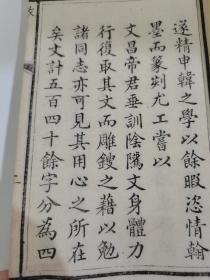 遂精申韓之學以餘暇恣情翰
墨而篆刻尤工嘗以
文昌帝君垂訓陰騭文身體力
行復取其文而雕鎪之藉以勉
諸同志亦可見其用心之所在
矣文計五百四十餘字分為四
二